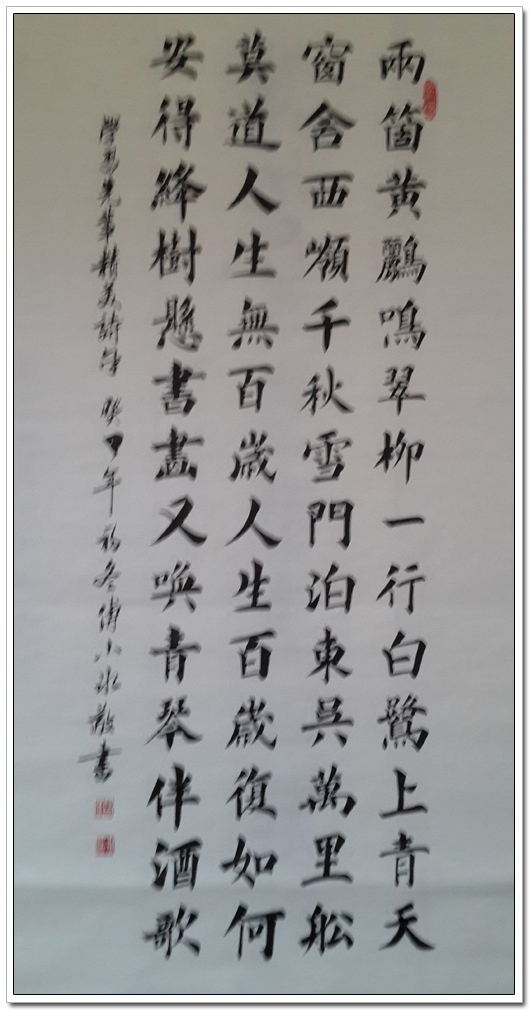 兩箇黃鸝鳴翠柳一行白鷺上青天
窗含西嶺千秋雪門泊東吳萬里舩
莫道人生無百歲人生百歲復如何
安得絳樹懸書畫又喚青琴伴酒歌
學習先輩精美詩句 癸巳年初冬傅小冰敬書